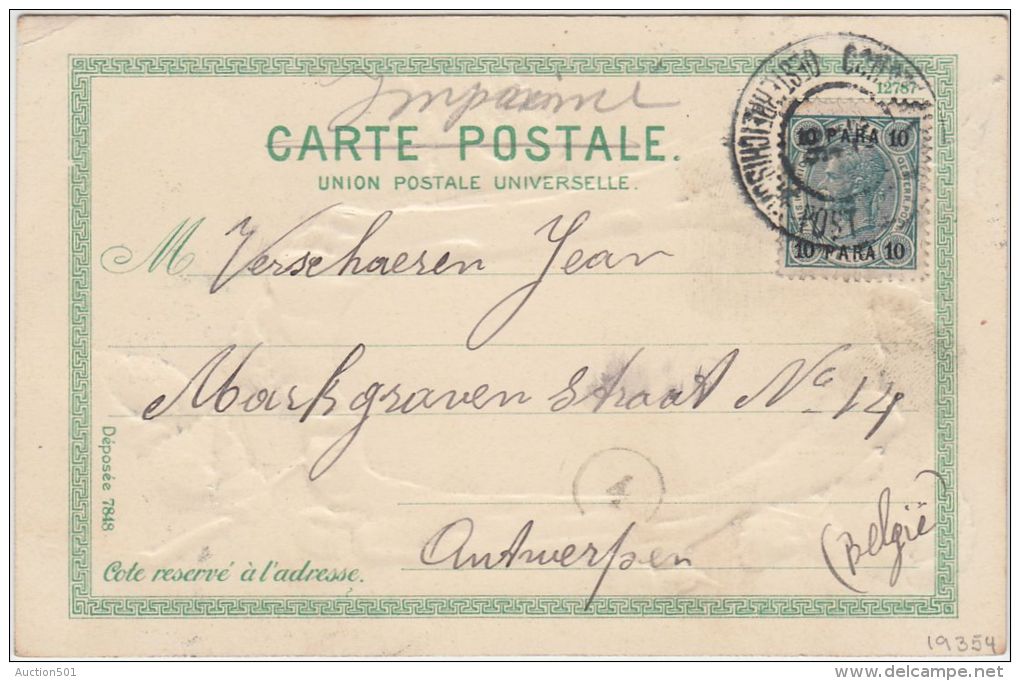 12787
Imprimé
CARTE POSTALE.
UNION POSTALE UNIVERSELLE.
10 PARA 10
POST
10 PARA 10
M. Verschaeren Jean
Markgraven straat No 14
1
Antwerpen
(België)
Déposée 7848
Cote reservé à l'adresse.
19354
Auction501
delcampe.net